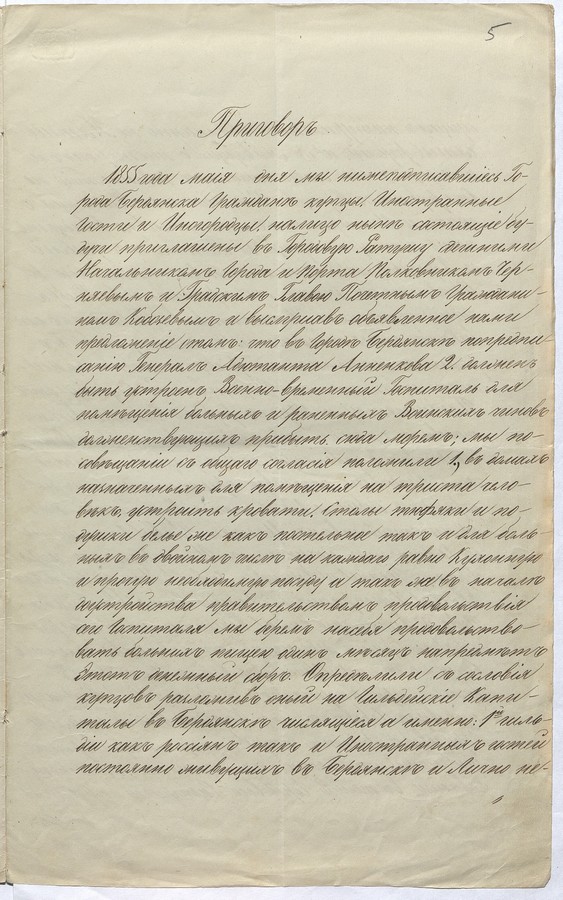 5
Приговоръ
1855 года маія дня мы нижеподписавшіесь Го-
рода Бердянска Граждане купцы, Иностранные
Гости и Иногородцы, налицо нынѣ состоящіе бу-
дучи приглашены въ Городовую Ратушу
Начальникомъ Города и Порта Полковникомъ Чер-
няевымъ и Градскимъ Главою Почетнымъ Граждани-
номъ Кобозевымъ и выслушавъ объявленное нами
предложеніе о томъ: что въ Городѣ Бердянскѣ попредпи-
санію Генералъ Адъютанта Анненкова 2. долженъ
быть устроенъ Военно-временный Госпиталь для
помѣщенія больныхъ и раненныхъ Воинскихъ чиновъ
долженствующихъ прибыть сюда моремъ; мы по-
совѣщаніи съ общаго согласія положили 1., въ домахъ
назначенныхъ для помѣщенія на триста чело-
вѣкъ устроить кровати, столы тюфяки и по-
душки белье же какъ постельное такъ и для боль-
ныхъ въ двойномъ числѣ на каждаго равно Кухонную
и прочую необходимую посуду а такъ же въ началѣ
доустройства правительствомъ продовольствія
сего Госпиталя мы беремъ насебя продовольство-
вать больныхъ пищею одинъ мѣсяцъ напредметъ
этотъ денежный сборъ. Опредѣлили съ сословія
купцовъ разложивъ оный на Гильдейскіе Капи-
талы въ Бердянскѣ числящіеся а именно: 1й гиль-
діи какъ россіянъ такъ и Иностранныхъ гостей
постоянно живущихъ въ Бердянскѣ и Лично не-